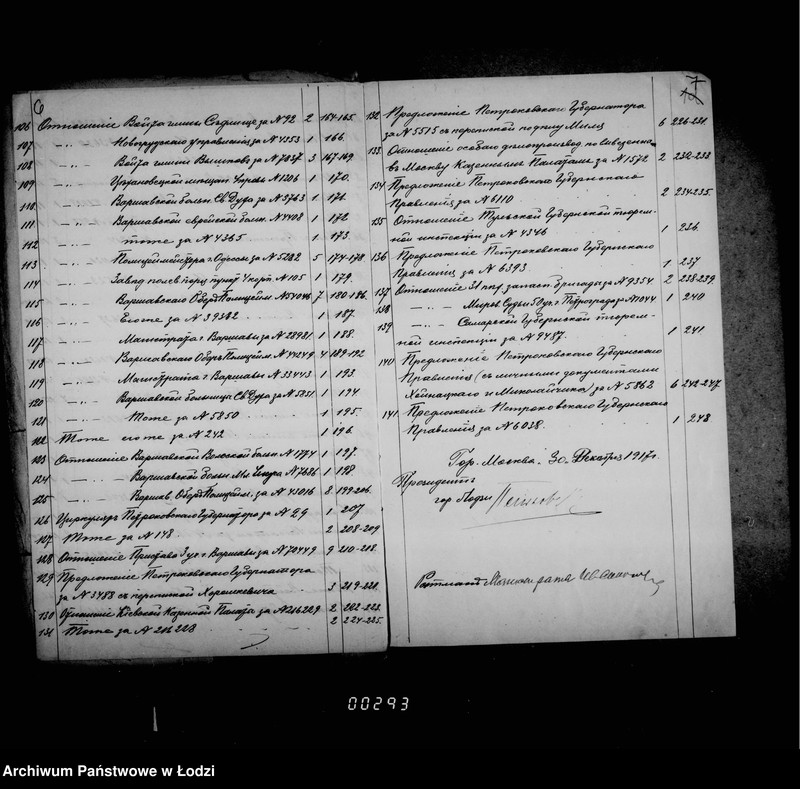 6
106 Отношеніе Войта гмины Съдлище за N 72 2 164-165.
107 —„— Новогрудскаго управленія за N 4353 1 166.
108 —„— Войта гмины за N 7837 3 167-169.
109 —„— мѣщан. Управы N 1206 1 170.
110 —„— Варшавской больн. Св. Духа за N 5763 1 171.
111 —„— Варшавской еврейской больн. N 4408 1 172
112 —„— тоже за N 4365 1 173.
113 —„— Полицмейстера г. Одессы за N 5282 5 174-178.
114 —„— N 105 1 179.
115 —„— Варшавскаго Оберъ Полицейм. 7 180-186.
116 —„— Егоже за N 39382 1 187.
117 —„— Магистрата г. Варшавы за N 28981 1 188.
118 —„— Варшавскаго Оберъ Полицейм. N 44249 4 189-192
119 —„— Магистрата г. Варшавы N 33443 1 193
120 —„— Варшавской больницы Св. Духа за N 5851 1 194
121 —„— Тоже за N 5850 1 195.
122 Тоже егоже за N 242 1 196.
123 Отношеніе Варшавской Вольской больн. N 1774 1 197.
124 —„— Варшавской больн. Мл. Іисуса N 7686 1 198
125 —„— Варшав. Оберъ Полицейм. за N 43016 8 199-206.
126 Циркуляръ Петроковскаго Губернатора за N 29 1 207
127 Тоже за N 148 2 208-209
128 Отношеніе Пристава 3 уч. г. Варшавы за N 70449 9 210-218.
129 Предложеніе Петроковскаго Губернатора
за N 3488 съ перепиской 3 219-221.
130 Отношеніе Кіевской Казенной Палаты за N 216229 2 222-223.
131 Тоже за N 216228 2 224-225.
7
132 Предложеніе Петроковскаго Губернатора
за N 5515 съ перепиской 6 226-231.
133 Отношеніе особаго дѣлопроизвод.
въ Москву Казенныхъ Палатъ за N 1572 2 232-233
134 Предложеніе Петроковскаго Губернскаго
Правленія за N 6110 2 234-235.
135 Отношеніе Тульской Губернской тюрем-
ной инспекціи за N 4346 1 236.
136 Предложеніе Петроковскаго Губернскаго
Правленія за N 6393 1 237
137 Отношеніе 31 запасн. бригады за N 9354 2 238-239.
138 —„— Миров. Судьи 50 уч. г. Петрограда N 1044 1 240
139 —„— Самарской Губернской тюрем-
ной инспекціи за N 9487. 1 241
140 Предложеніе Петроковскаго Губернскаго
Правленія (съ личными документами
Хойнацкаго и Миколайчика) за N 5862 6 242-247.
141 Предложеніе Петроковскаго Губернскаго
Правленія за N 6028. 1 248
Гор. Москва. 30 Декабря 1917 г.
Президентъ
гор. Лодзи
Ратманъ Магистрата
00293
Archiwum Państwowe w Łodzi